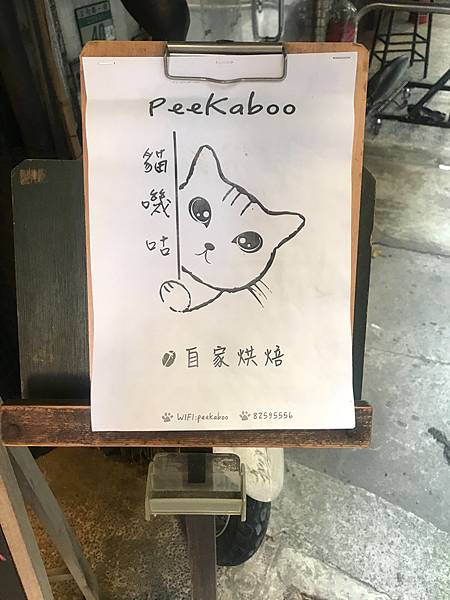 Peekaboo
貓嘰咕
自家烘焙
WIFI:peekaboo 82595556